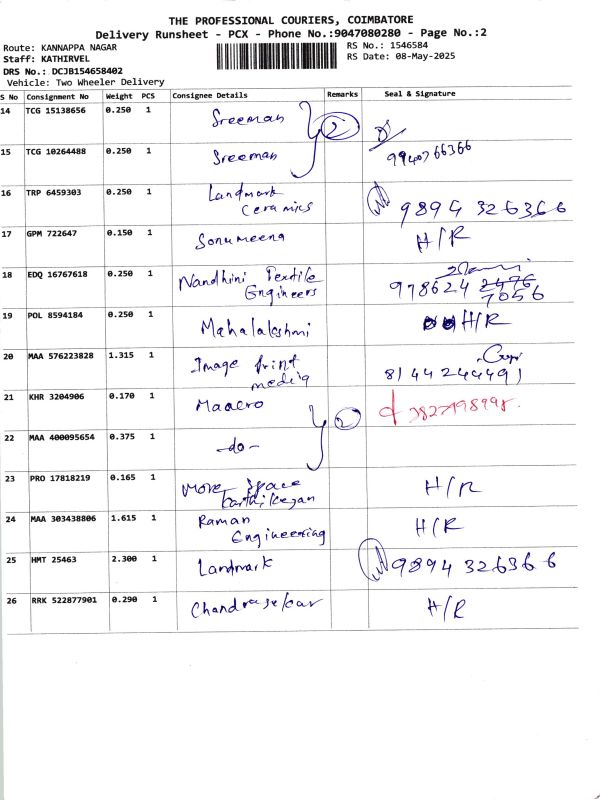 THE PROFESSIONAL COURIERS, COIMBATORE
Delivery Runsheet - PCX - Phone No.:9047080280 - Page No.:2
Route: KANNAPPA NAGAR
Staff: KATHIRVEL
DRS No.: DCJB154658402
Vehicle: Two Wheeler Delivery
RS No.: 1546584
RS Date: 08-May-2025
S No Consignment No Weight PCS Consignee Details Remarks Seal & Signature
14 TCG 15138656 0.250 1 Sreeman 2
15 TCG 10264488 0.250 1 Sreeman 9940766366
16 TRP 6459303 0.250 1 Landmark
Ceramics 9894 326366
17 GPM 722647 0.150 1 Sonumeena H/R
18 EDQ 16767618 0.250 1 Nandhini Textile
Engineers 978624 2476
7056
19 POL 8594184 0.250 1 Mahalalakshmi H/R
20 MAA 576223828 1.315 1 Image print
media 8144244491
21 KHR 3204906 0.170 1 Maacro 2
22 MAA 400095654 0.375 1 -do-
23 PRO 17818219 0.165 1 More Space
Karthikeyan H/R
24 MAA 303438806 1.615 1 Raman
Engineering H/R
25 HMT 25463 2.300 1 Landmark 9894 326366
26 RRK 522877901 0.290 1 Chandrasekar H/R